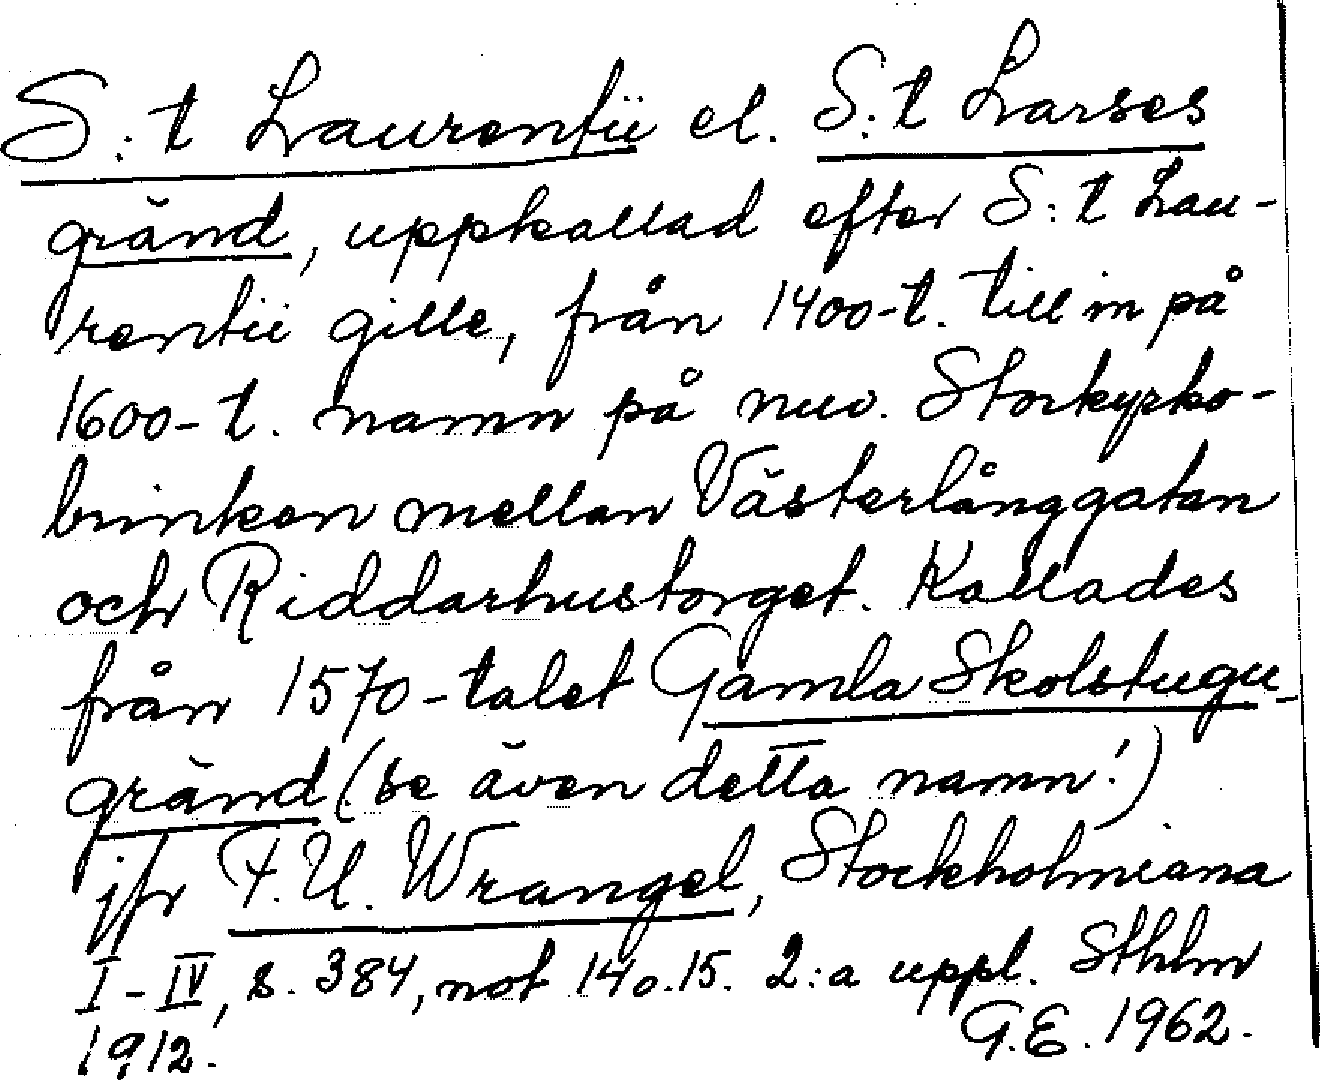 S:t Laurentii el. S:t Larses
gränd, uppkallad efter S:t Lau-
rentii gille, från 1400-t. till in på
1600-t. namn på nuv. Storkyrko-
brinken mellan Västerlånggatan
och Riddarhustorget. Kallades
från 1570-talet Gamla Skolstugu-
gränd (se även detta namn!)
jfr F.U. Wrangel, Stockholmiana
I-IV, s. 384, not 14 o. 15. 2:a uppl. Sthlm
1912. G.E. 1962.